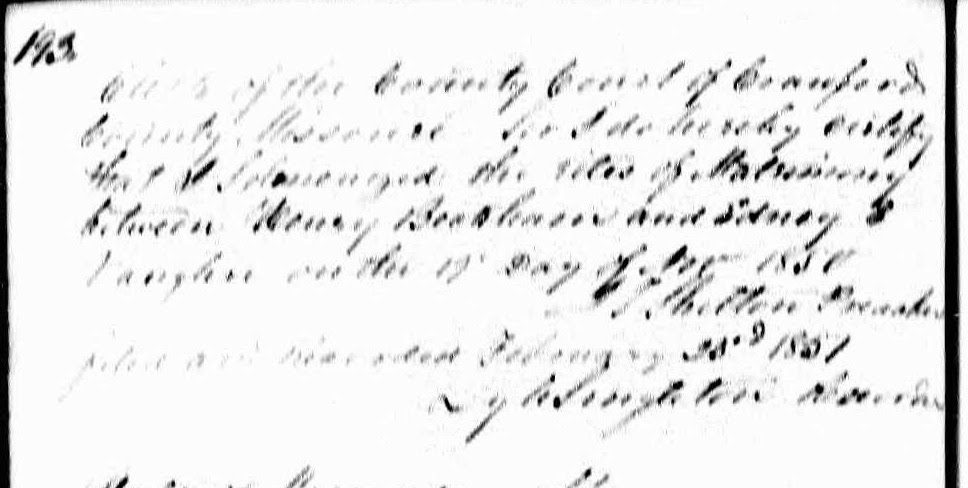 193.
Clerk of the County Court of Crawford
County Missouri Sir I do hereby certify
that I Solemonized the rites of Matrimony
between Henry and Sidney
Vaughn on the Day of Nov 1850
Shelton Preacher
filed and recorded February 1851
Singleton Recorder